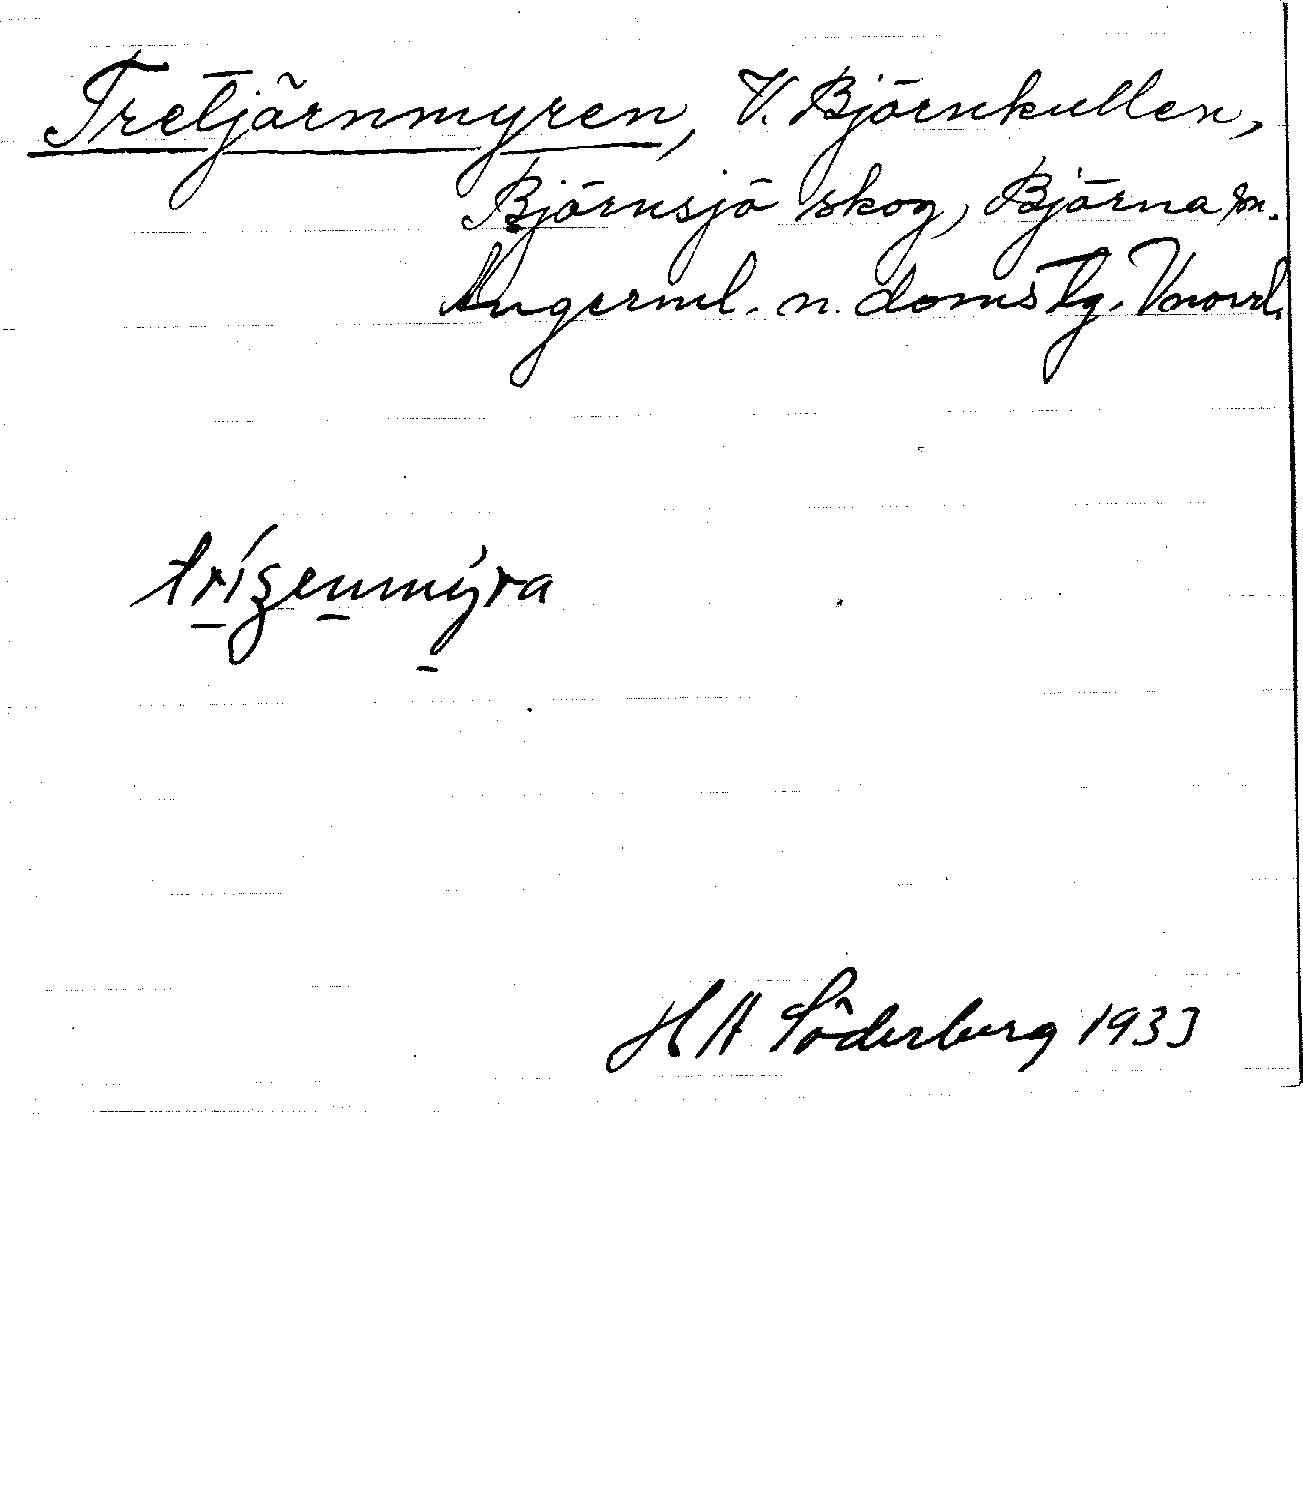 Tretjärnmyren, V. Björnkullen,
Björnsjö skog, Björna sn.
Ångerml. n. doms tg. Vnorrl.
trízenmýra
H A Söderberg 1933